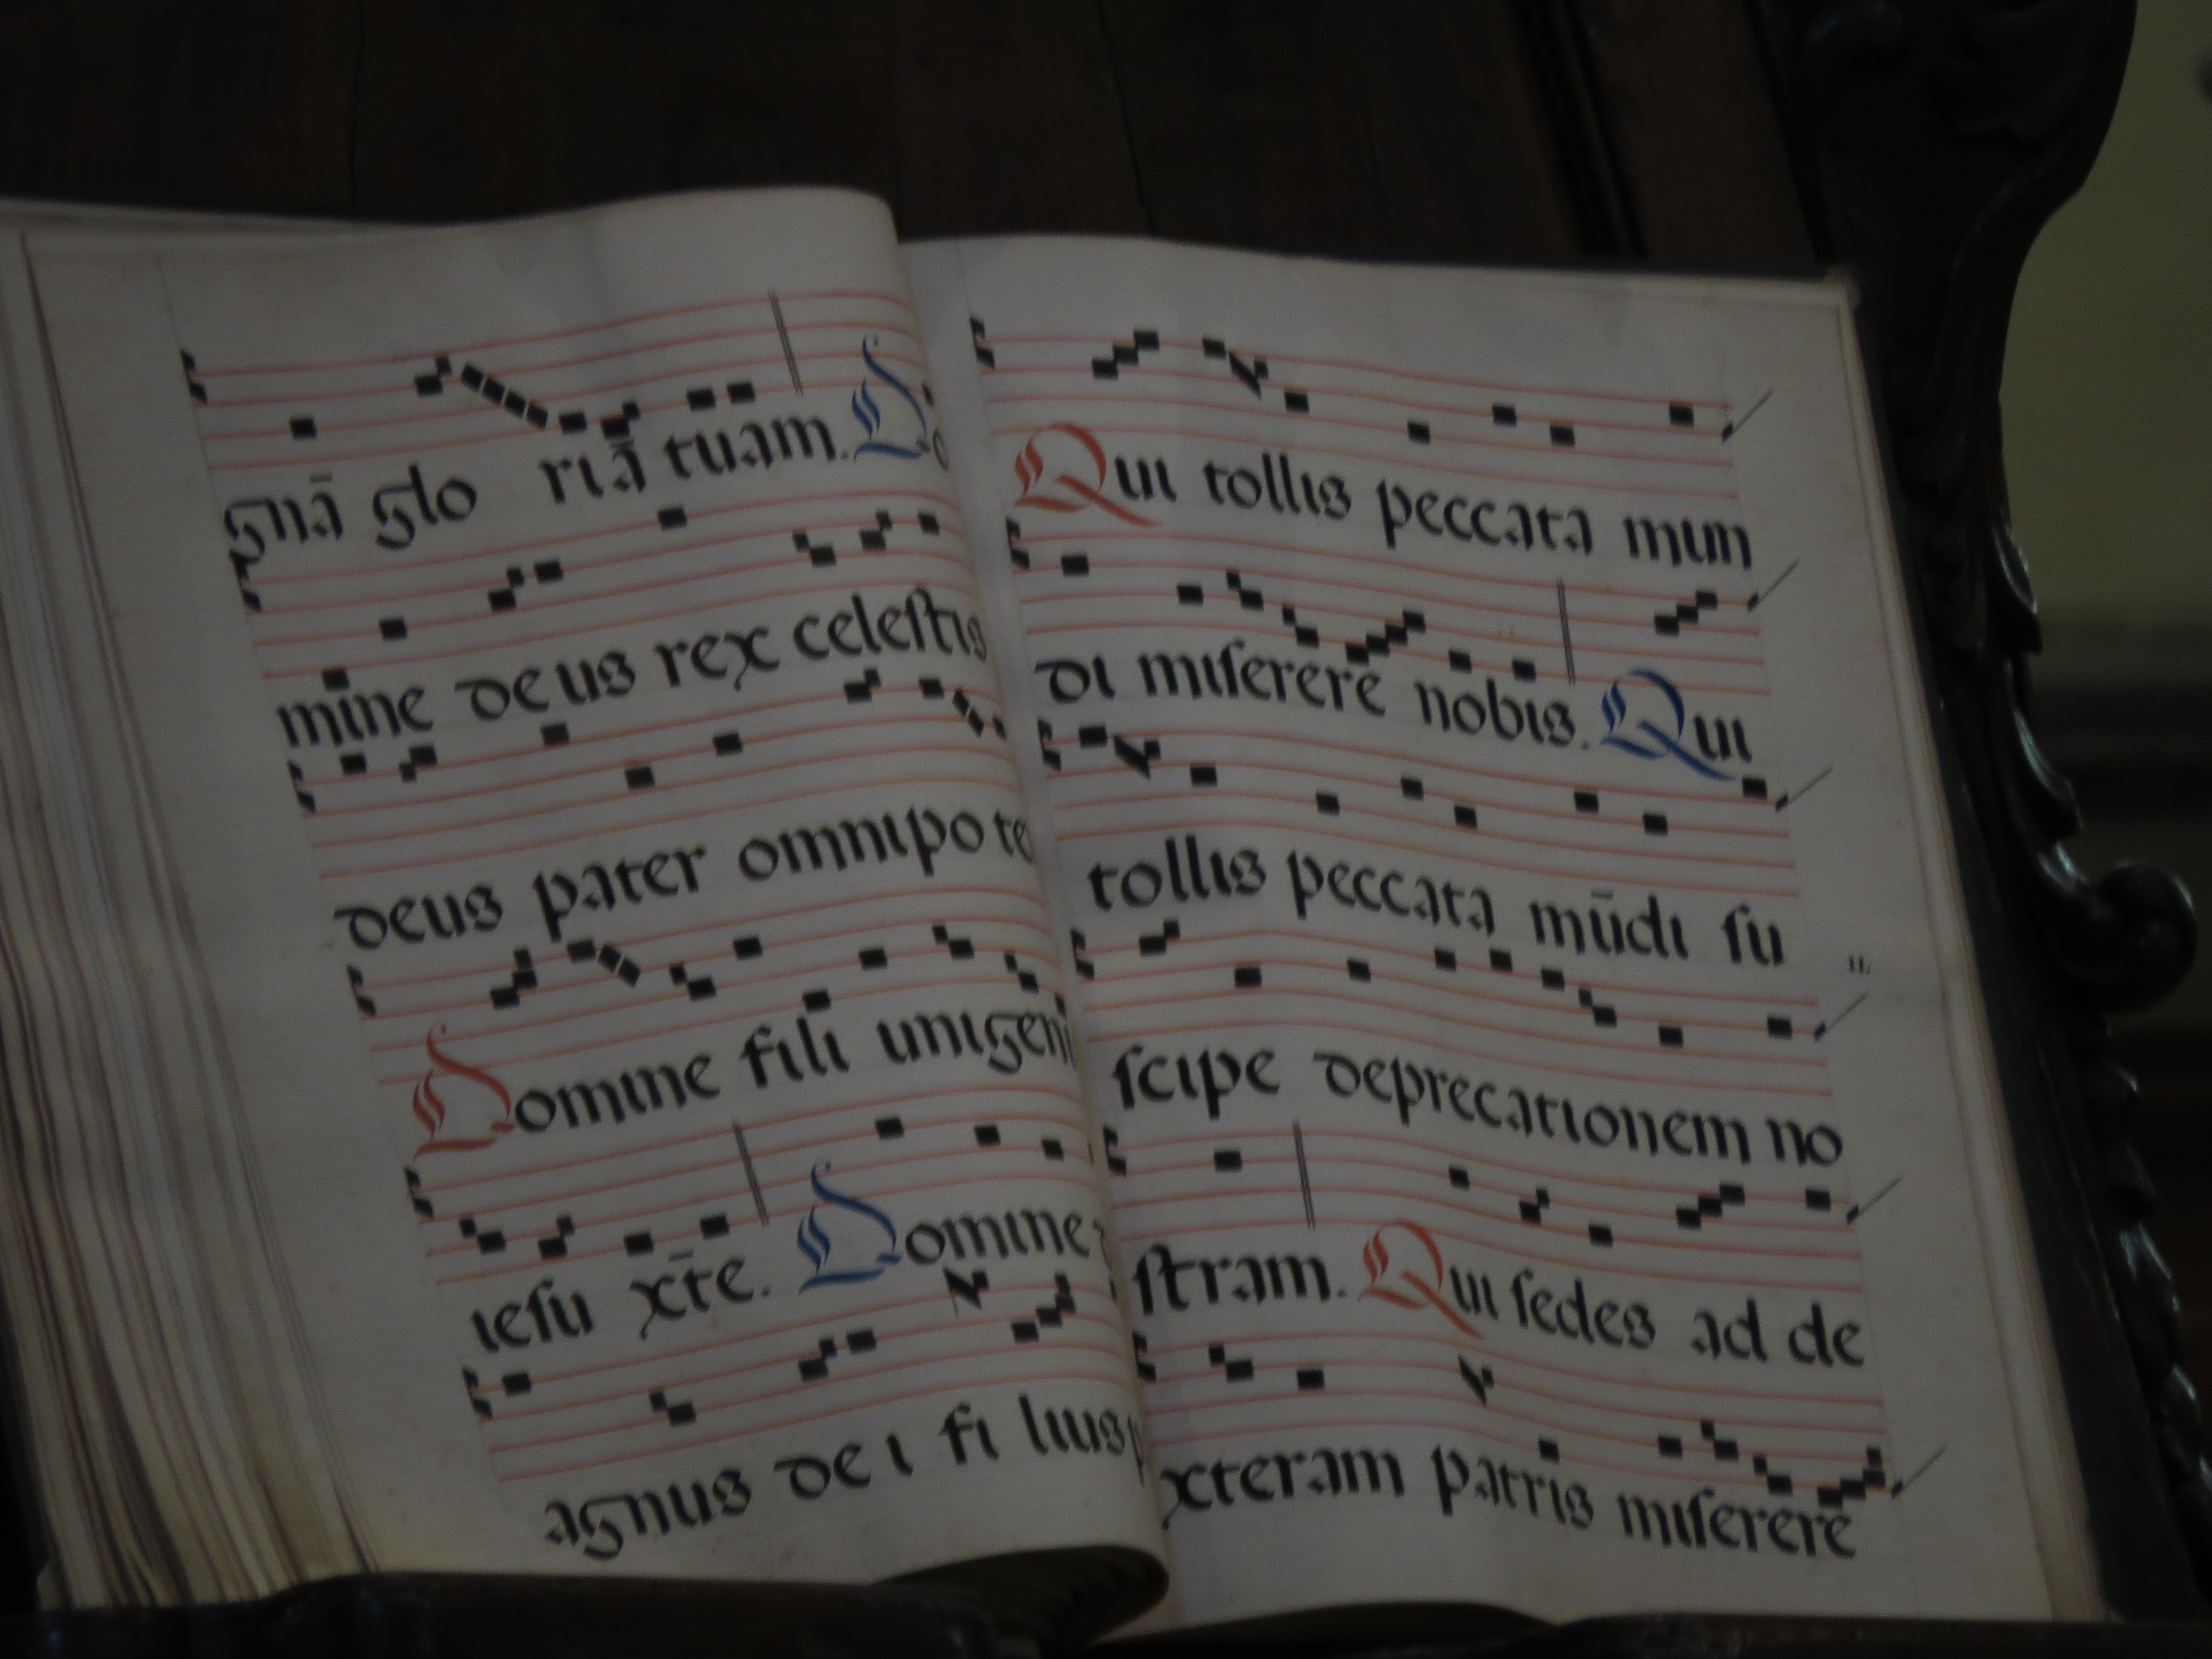 gnā glo riā tuam. Do
mine deus rex celeſtis
deus pater omnipo te
Domine fili unigeni
ieſu xp̄e. Domine
agnus dei fi lius
Qui tollis peccata mun
di miſerere nobis. Qui
tollis peccata mūdi ſu
ſcipe deprecationem no
ſtram. Qui ſedes ad de
xteram patris miſerere